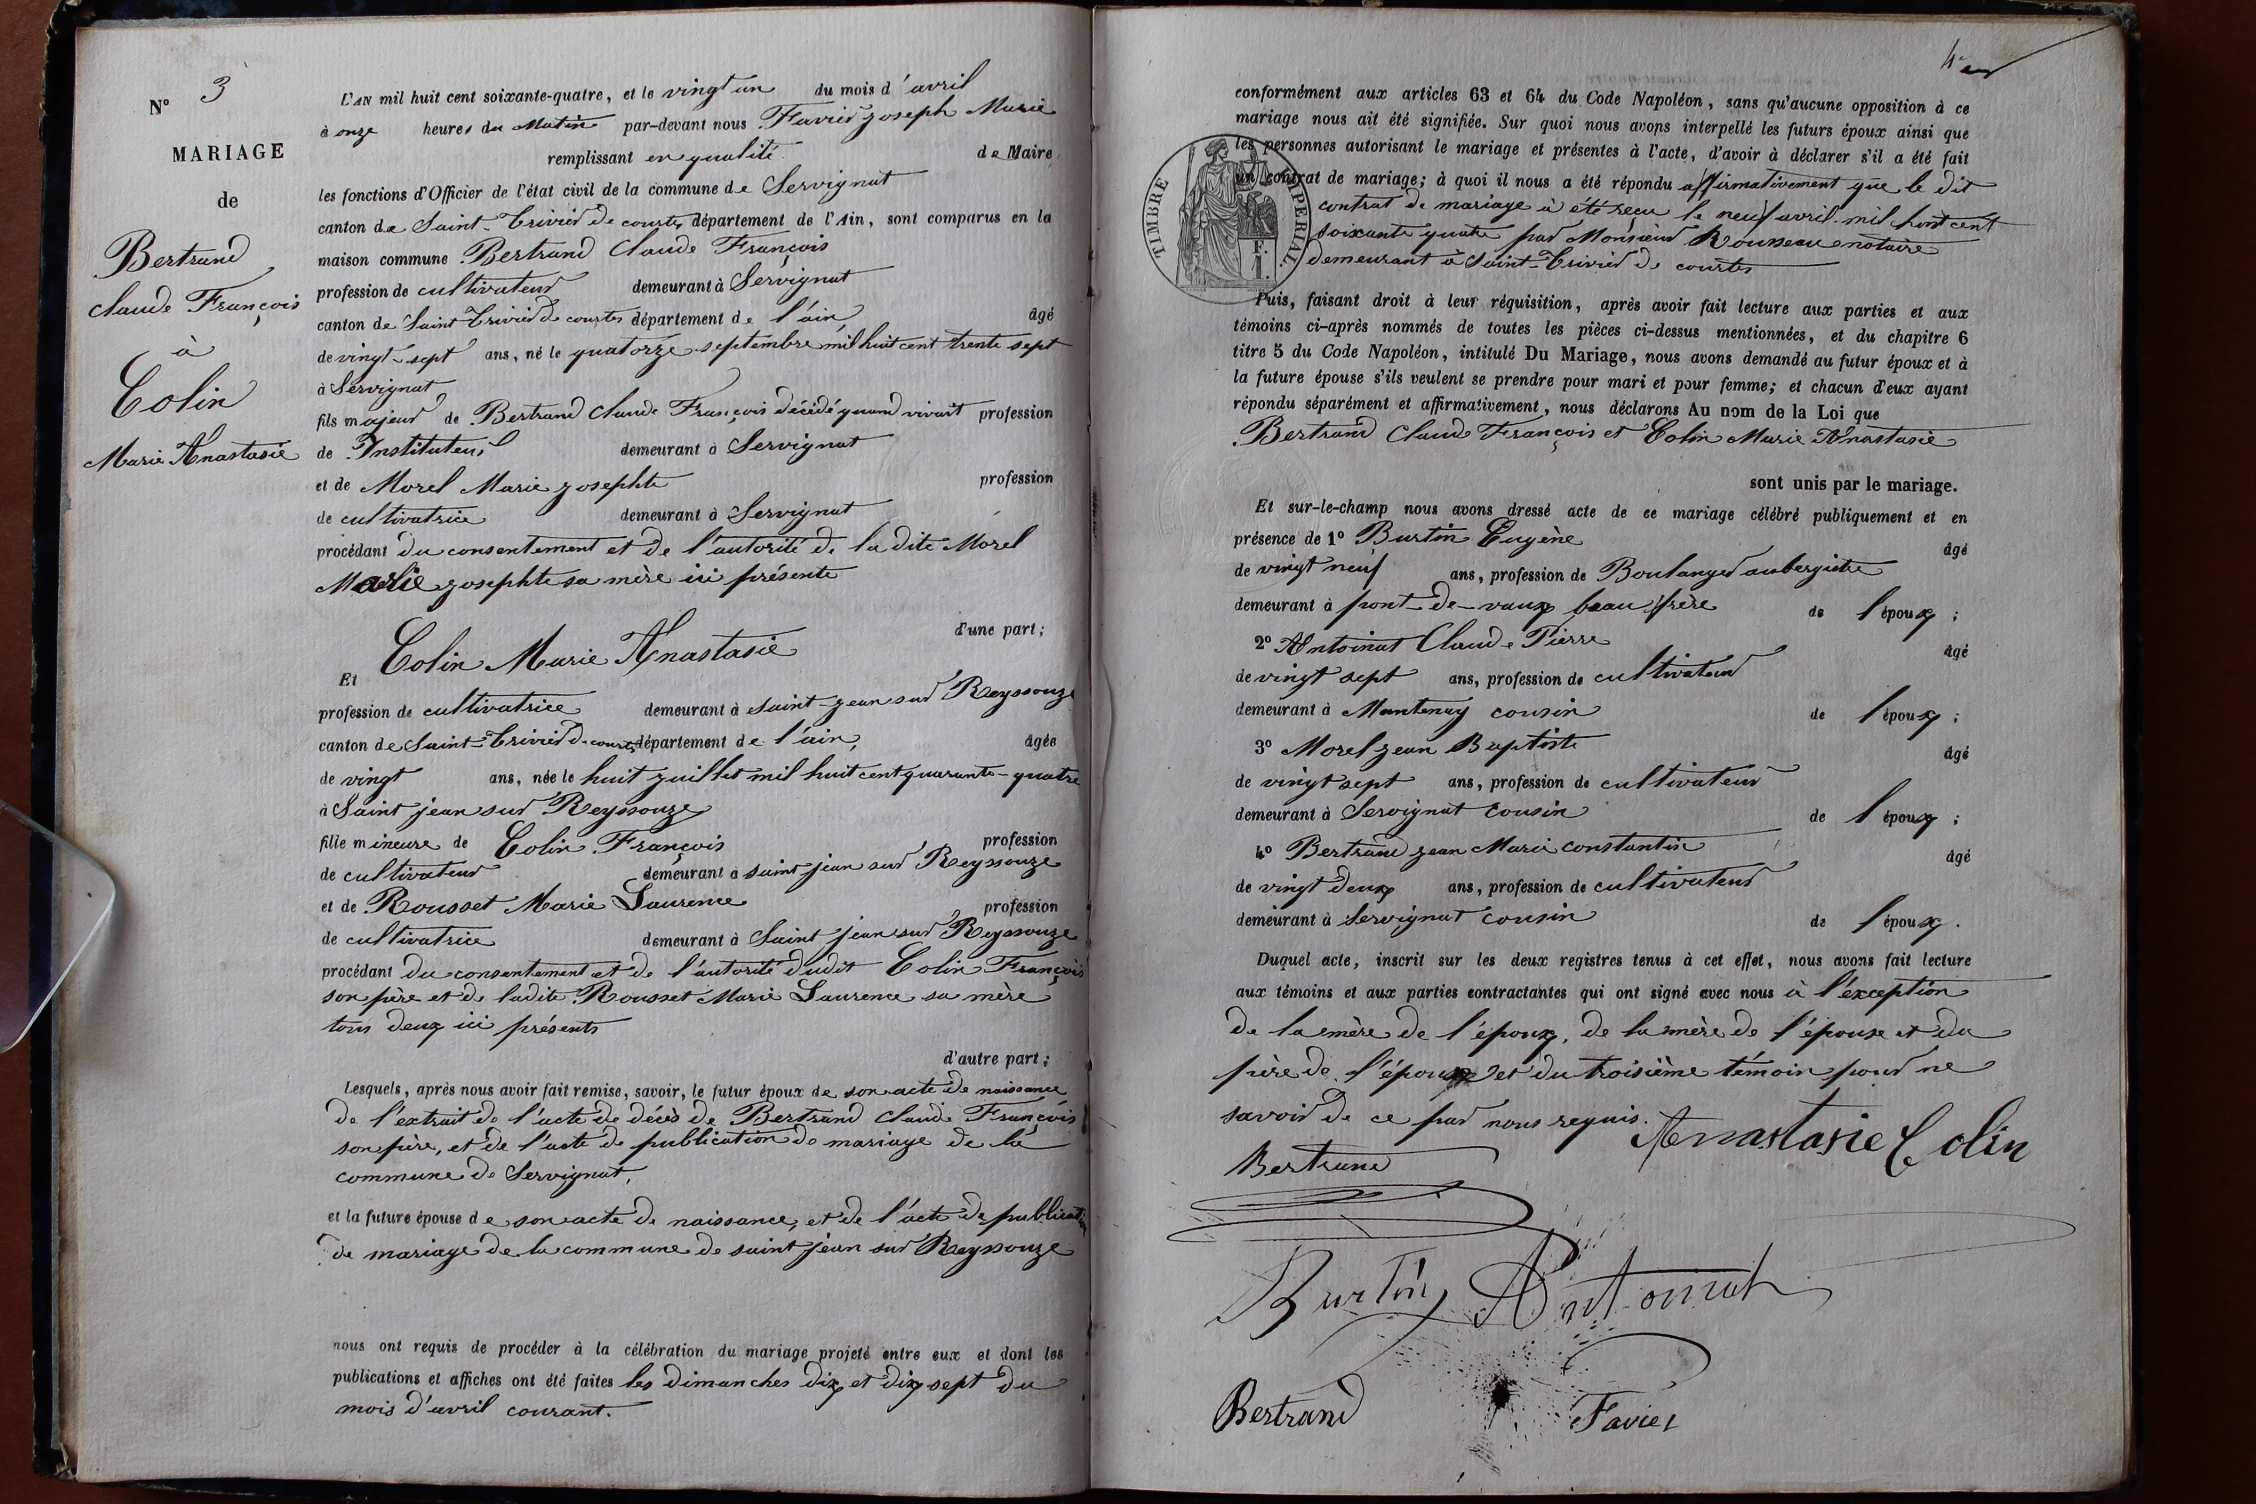 N° 3
MARIAGE
de
Bertrand
Claude François
à
Colin
Marie Anastasie
L'AN mil huit cent soixante-quatre, et le vingt un du mois d'avril
à onze heures du Matin par-devant nous Favier Joseph Marie
remplissant en qualité de Maire
les fonctions d'Officier de l'état civil de la commune de Servignat
canton de Saint-Trivier de courtes département de l'Ain, sont comparus en la
maison commune Bertrand Claude François
profession de cultivateur demeurant à Servignat
canton de Saint Trivier de courtes département de l'ain, âgé
de vingt-sept ans, né le quatorze septembre mil huit cent trente sept
à Servignat
fils majeur de Bertrand Claude François décédé quand vivait profession
de Instituteur demeurant à Servignat
et de Morel Marie Josephte profession
de cultivatrice demeurant à Servignat
procédant du consentement et de l'autorité de la dite Morel
Marie Josephte sa mère ici présente
d'une part;
Et Colin Marie Anastasie
profession de cultivatrice demeurant à saint-jean sur Reyssouze
canton de Saint-Trivier de courtes département de l'ain, âgée
de vingt ans, née le huit juillet mil huit cent quarante-quatre
à Saint jean sur Reyssouze
fille mineure de Colin François profession
de cultivateur demeurant à saint jean sur Reyssouze
et de Rousset Marie Laurence profession
de cultivatrice demeurant à Saint jean sur Reyssouze
procédant du consentement et de l'autorité dudit Colin François
son père et de ladite Rousset Marie Laurence sa mère
tous deux ici présents
d'autre part;
Lesquels, après nous avoir fait remise, savoir, le futur époux de son acte de naissance
de l'extrait de l'acte de décès de Bertrand Claude François
son père, et de l'acte de publication de mariage de la
commune de Servignat,
et la future épouse de son acte de naissance, et de l'acte de publication
de mariage de la commune de saint jean sur Reyssouze
nous ont requis de procéder à la célébration du mariage projeté entre eux et dont les
publications et affiches ont été faites les dimanches dix et dix sept du
mois d'avril courant.
conformément aux articles 63 et 64 du Code Napoléon, sans qu'aucune opposition à ce
mariage nous ait été signifiée. Sur quoi nous avons interpellé les futurs époux ainsi que
les personnes autorisant le mariage et présentes à l'acte, d'avoir à déclarer s'il a été fait
un contrat de mariage; à quoi il nous a été répondu affirmativement que le dit
contrat de mariage à été reçu le neuf avril mil huit cent
soixante quatre par Monsieur Rousseau notaire
demeurant à Saint-Trivier de courtes
TIMBRE IMPERIAL
F.
1.
Puis, faisant droit à leur réquisition, après avoir fait lecture aux parties et aux
témoins ci-après nommés de toutes les pièces ci-dessus mentionnées, et du chapitre 6
titre 5 du Code Napoléon, intitulé Du Mariage, nous avons demandé au futur époux et à
la future épouse s'ils veulent se prendre pour mari et pour femme; et chacun d'eux ayant
répondu séparément et affirmativement, nous déclarons Au nom de la Loi que
Bertrand Claude François et Colin Marie Anastasie
sont unis par le mariage.
Et sur-le-champ nous avons dressé acte de ce mariage célébré publiquement et en
présence de 1° Burtin Eugène âgé
de vingt neuf ans, profession de Boulanger aubergiste
demeurant à pont-de-vaux beau frère de l'époux;
2° Antoinat Claude Pierre âgé
de vingt sept ans, profession de cultivateur
demeurant à Mantenay cousin de l'époux;
3° Morel jean Baptiste âgé
de vingt sept ans, profession de cultivateur
demeurant à Servignat cousin de l'époux;
4° Bertrand jean Marie constantin âgé
de vingt deux ans, profession de cultivateur
demeurant à Servignat cousin de l'époux.
Duquel acte, inscrit sur les deux registres tenus à cet effet, nous avons fait lecture
aux témoins et aux parties contractantes qui ont signé avec nous à l'exception
de la mère de l'époux, de la mère de l'épouse et du
père de l'épouse et du troisième témoin pour ne
savoir de ce par nous requis.
Anastasie Colin
Bertrand
Burtin Antoinat
Bertrand Favier